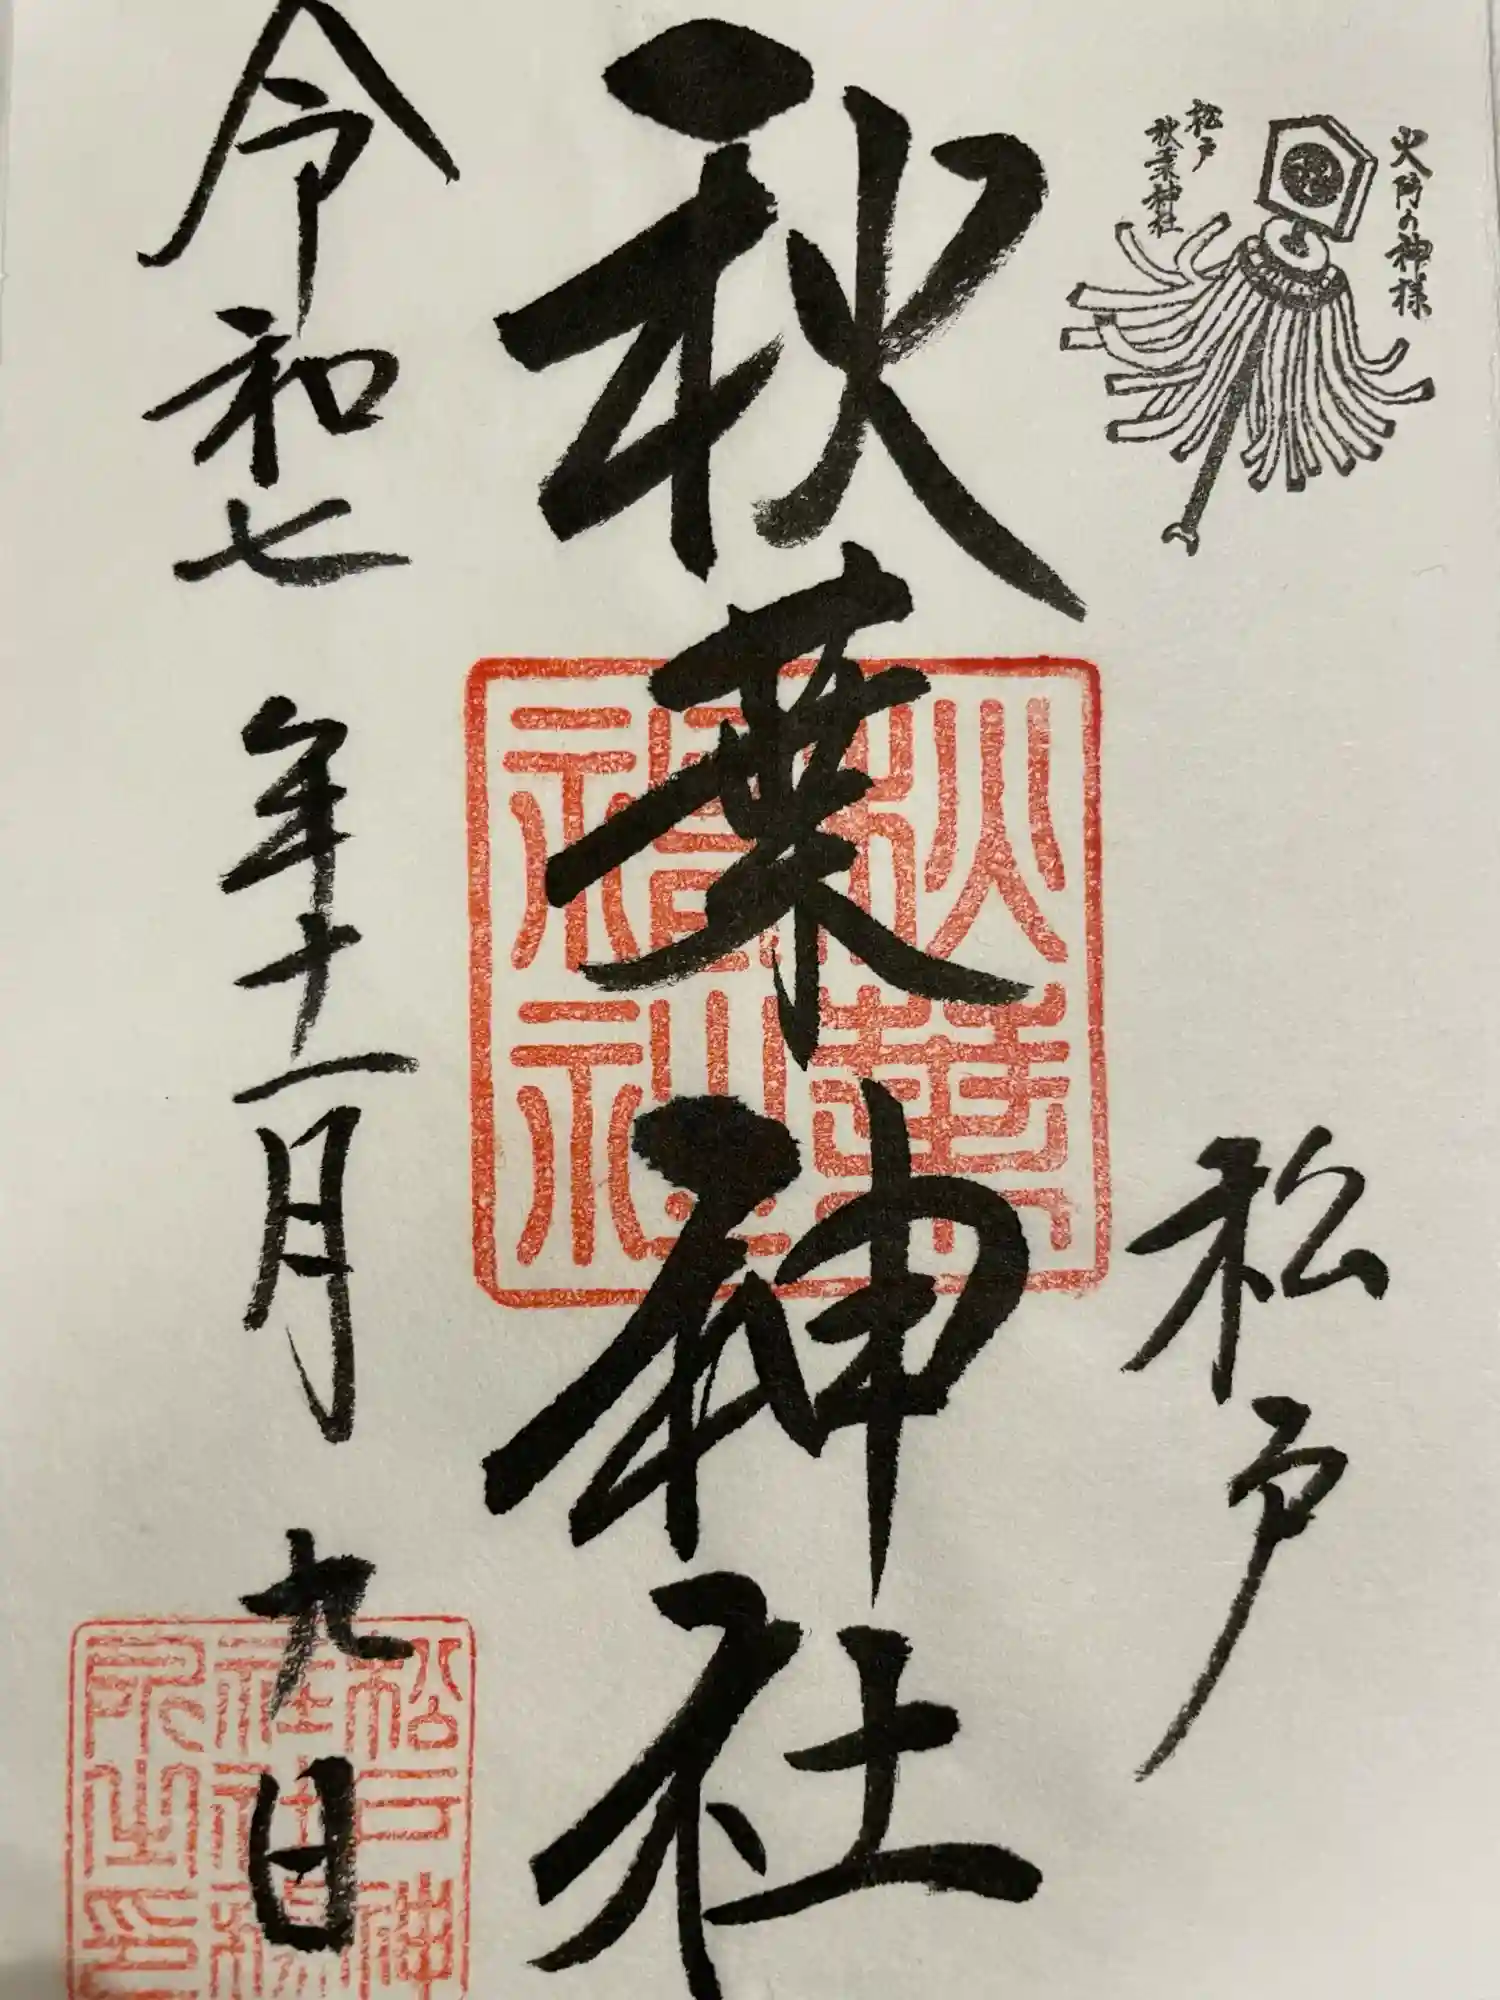 火防の神様
松戸
秋葉神社
松戸
秋葉神社
令和七年十一月九日
秋葉神社
松戸神
社社務
所之印